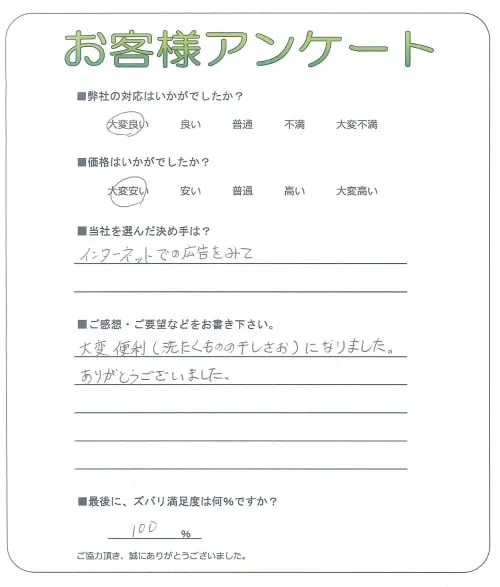 お客様アンケート
■弊社の対応はいかがでしたか？
大変良い 良い 普通 不満 大変不満
■価格はいかがでしたか？
大変安い 安い 普通 高い 大変高い
■当社を選んだ決め手は？
インターネットでの広告をみて
■ご感想・ご要望などをお書き下さい。
大変便利(洗たくものの干しさお)になりました。
ありがとうございました。
■最後に、ズバリ満足度は何%ですか？
100 %
ご協力頂き、誠にありがとうございました。